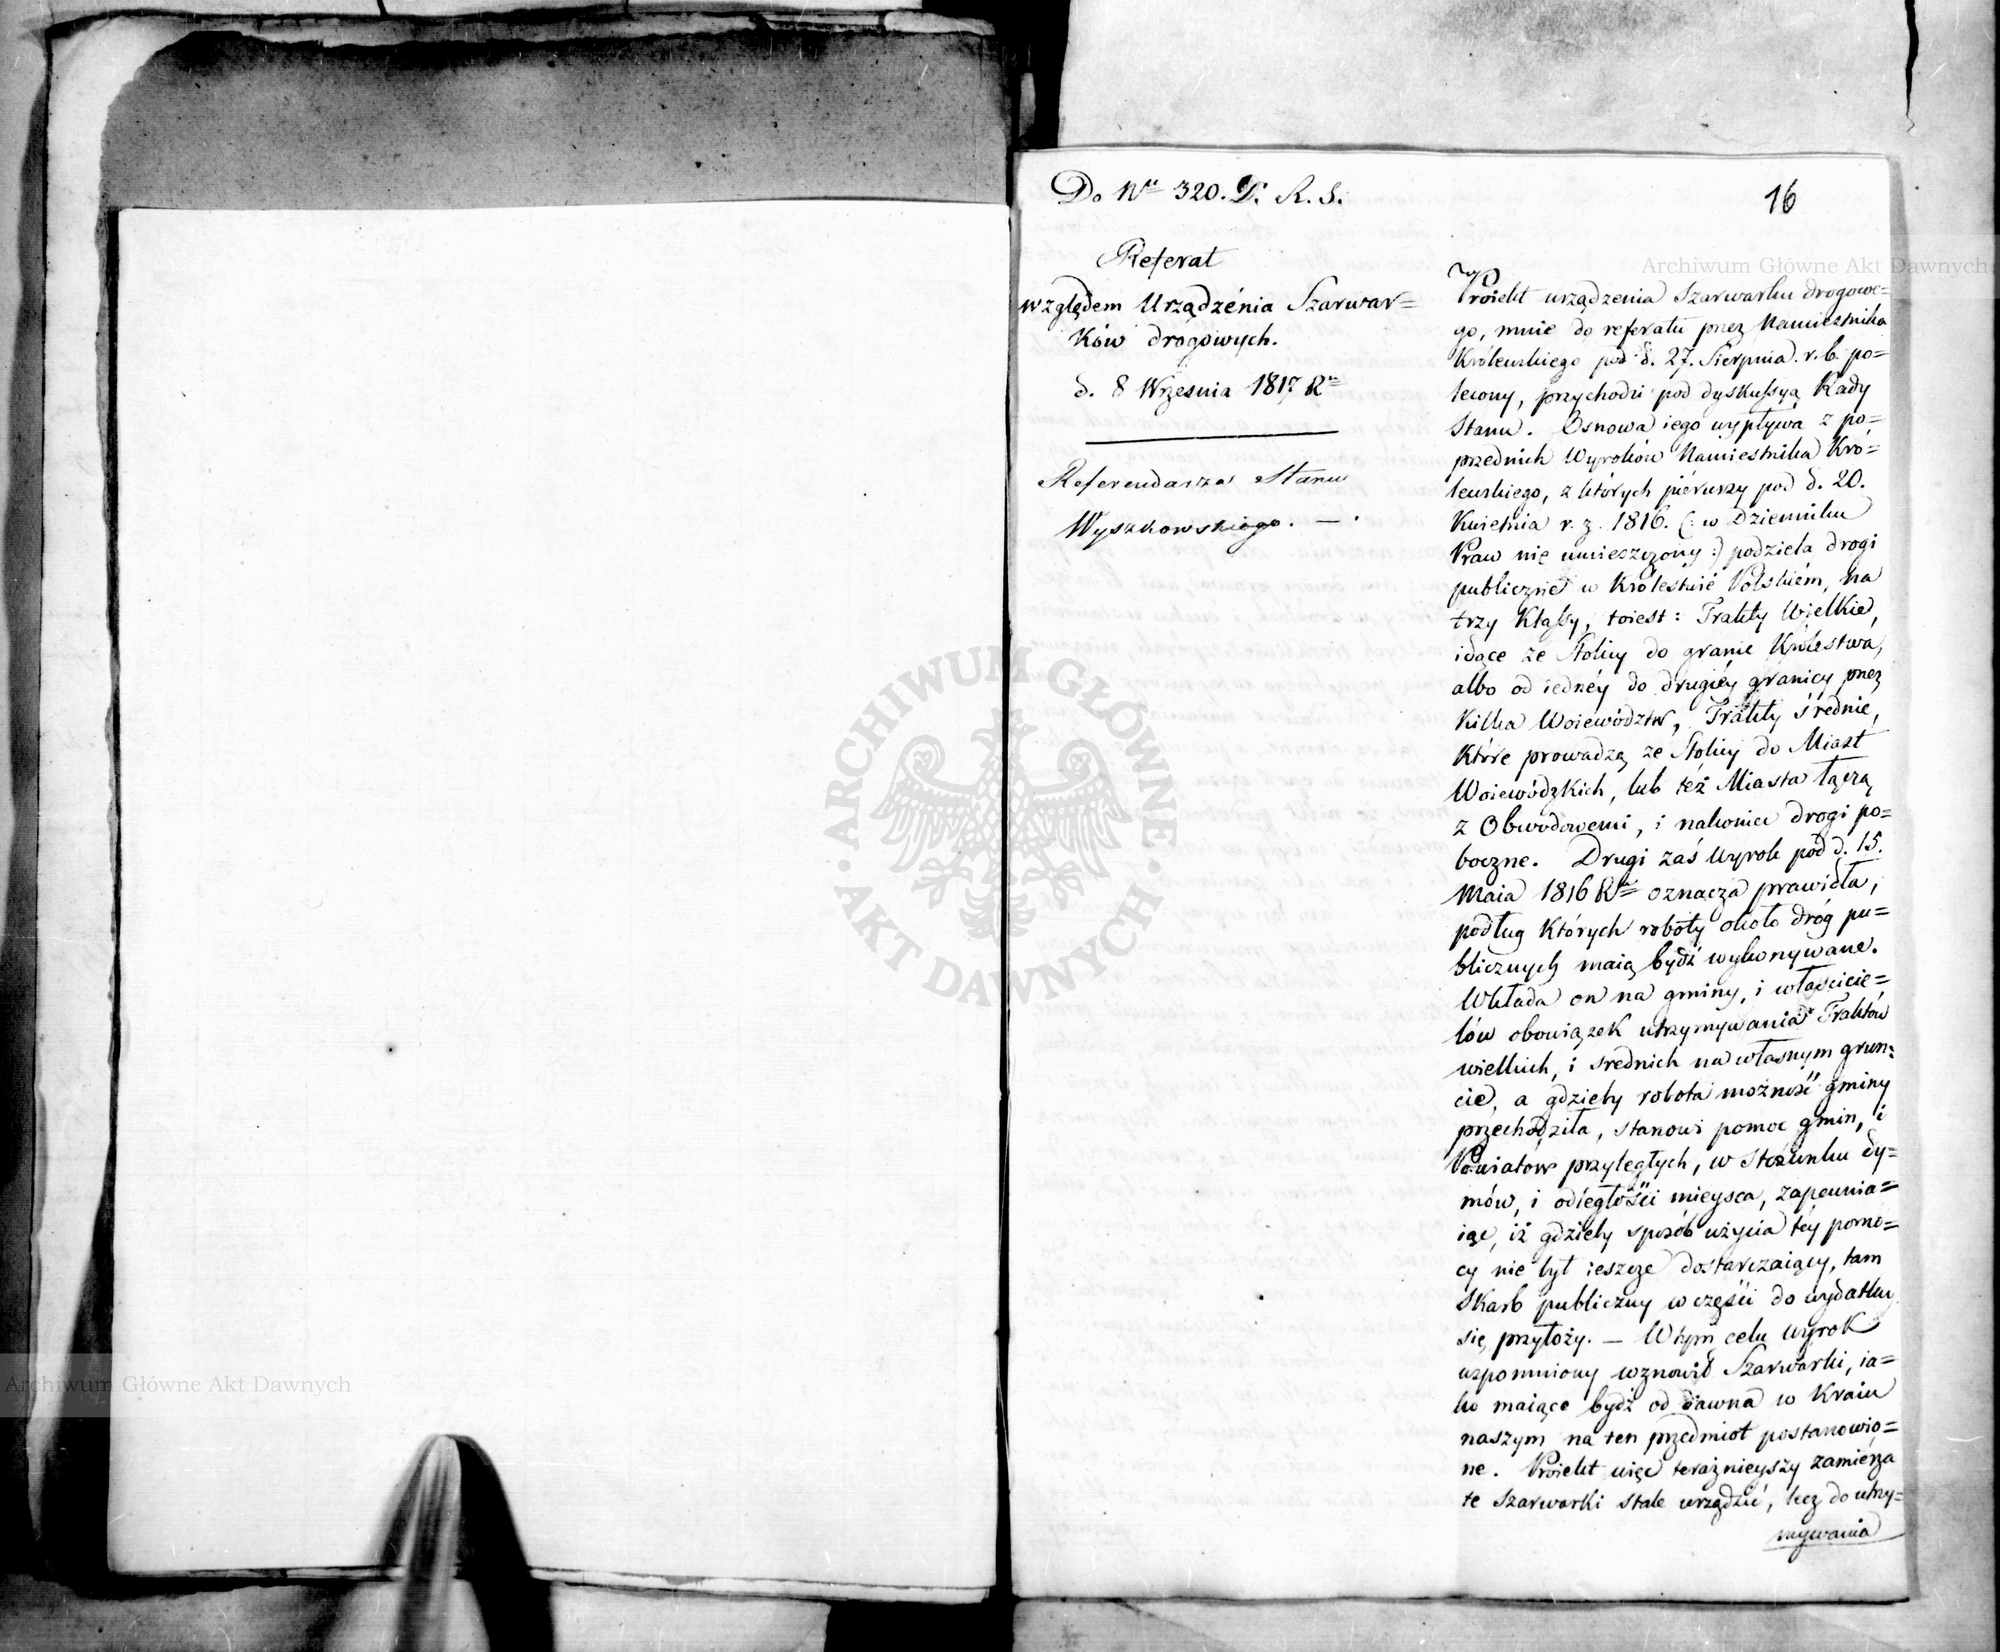 Do Nru 320. D. R. S.
16
Referat
względem Urządzénia Szarwar=
ków drógowych.
d. 8 Września 1817 Ru
Referendarza Stanu
Wyszkowskiego. — .
Proiekt urządzenia Szarwarku drogowe=
go, mnie do referatu przez Namiestnika
Królewskiego pod d. 27. Sierpnia r. b. po=
lecony, przychodzi pod dyskussyą Rady
Stanu. Osnowa iego wypływa z po=
przednich Wyroków Namiestnika Kró=
lewskiego, z których piérwszy pod d. 20.
Kwietnia r. z. 1816. (: w Dzienniku
Praw nie umieszczony :) podziela drogi
publiczne w Królestwie Polskiém, na
trzy Klassy, toiest: Trakty Wielkie,
idące ze Stolicy do granic Królestwa,
albo od iednéy do drugiéy granicy przez
Kilka Woiewództw, Trakty średnie,
Które prowadzą ze Stolicy do Miast
Woiewódzkich, lub też Miasta łączą
z Obwodowemi, i nakoniec drogi po=
boczne. Drugi zaś Wyrok pod d. 15.
Maia 1816 Ru oznacza prawidła,
podług Których roboty około dróg pu=
blicznych maią bydź wykonywane.
Wkłada on na gminy, i właścicie=
lów obowiązek utrzymywania Traktów
wielkich, i srednich na własnym grun=
cie, a gdzieby robota możność gminy
przechodziła, stanowi pomoc gmin, i
Powiatów przyległych, w stosunku dy=
mów, i odległości mieysca, zapewnia=
iąc, iż gdzieby sposób użycia téy pomo=
cy nie był ieszcze dostarczaiący, tam
Skarb publiczny w części do wydatku
się przyłoży. — W tym celu wyrok
wspomniony wznowił Szarwarki, ia=
ko maiące bydź od dawna w Kraiu
naszym na ten przedmiot postanowio=
ne. Proiekt więc teraznieyszy zamiérza
te Szarwarki stale urządzić, lecz do utrzy=
mywania
Archiwum Główne Akt Dawnych
ARCHIWUM GŁÓWNE · AKT DAWNYCH ·
Archiwum Główne Akt Dawnych